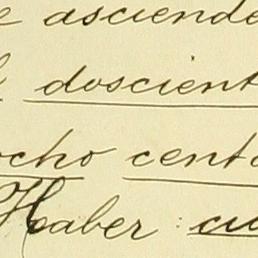 e asciende
l doscient
ocho cento
Haber: cu